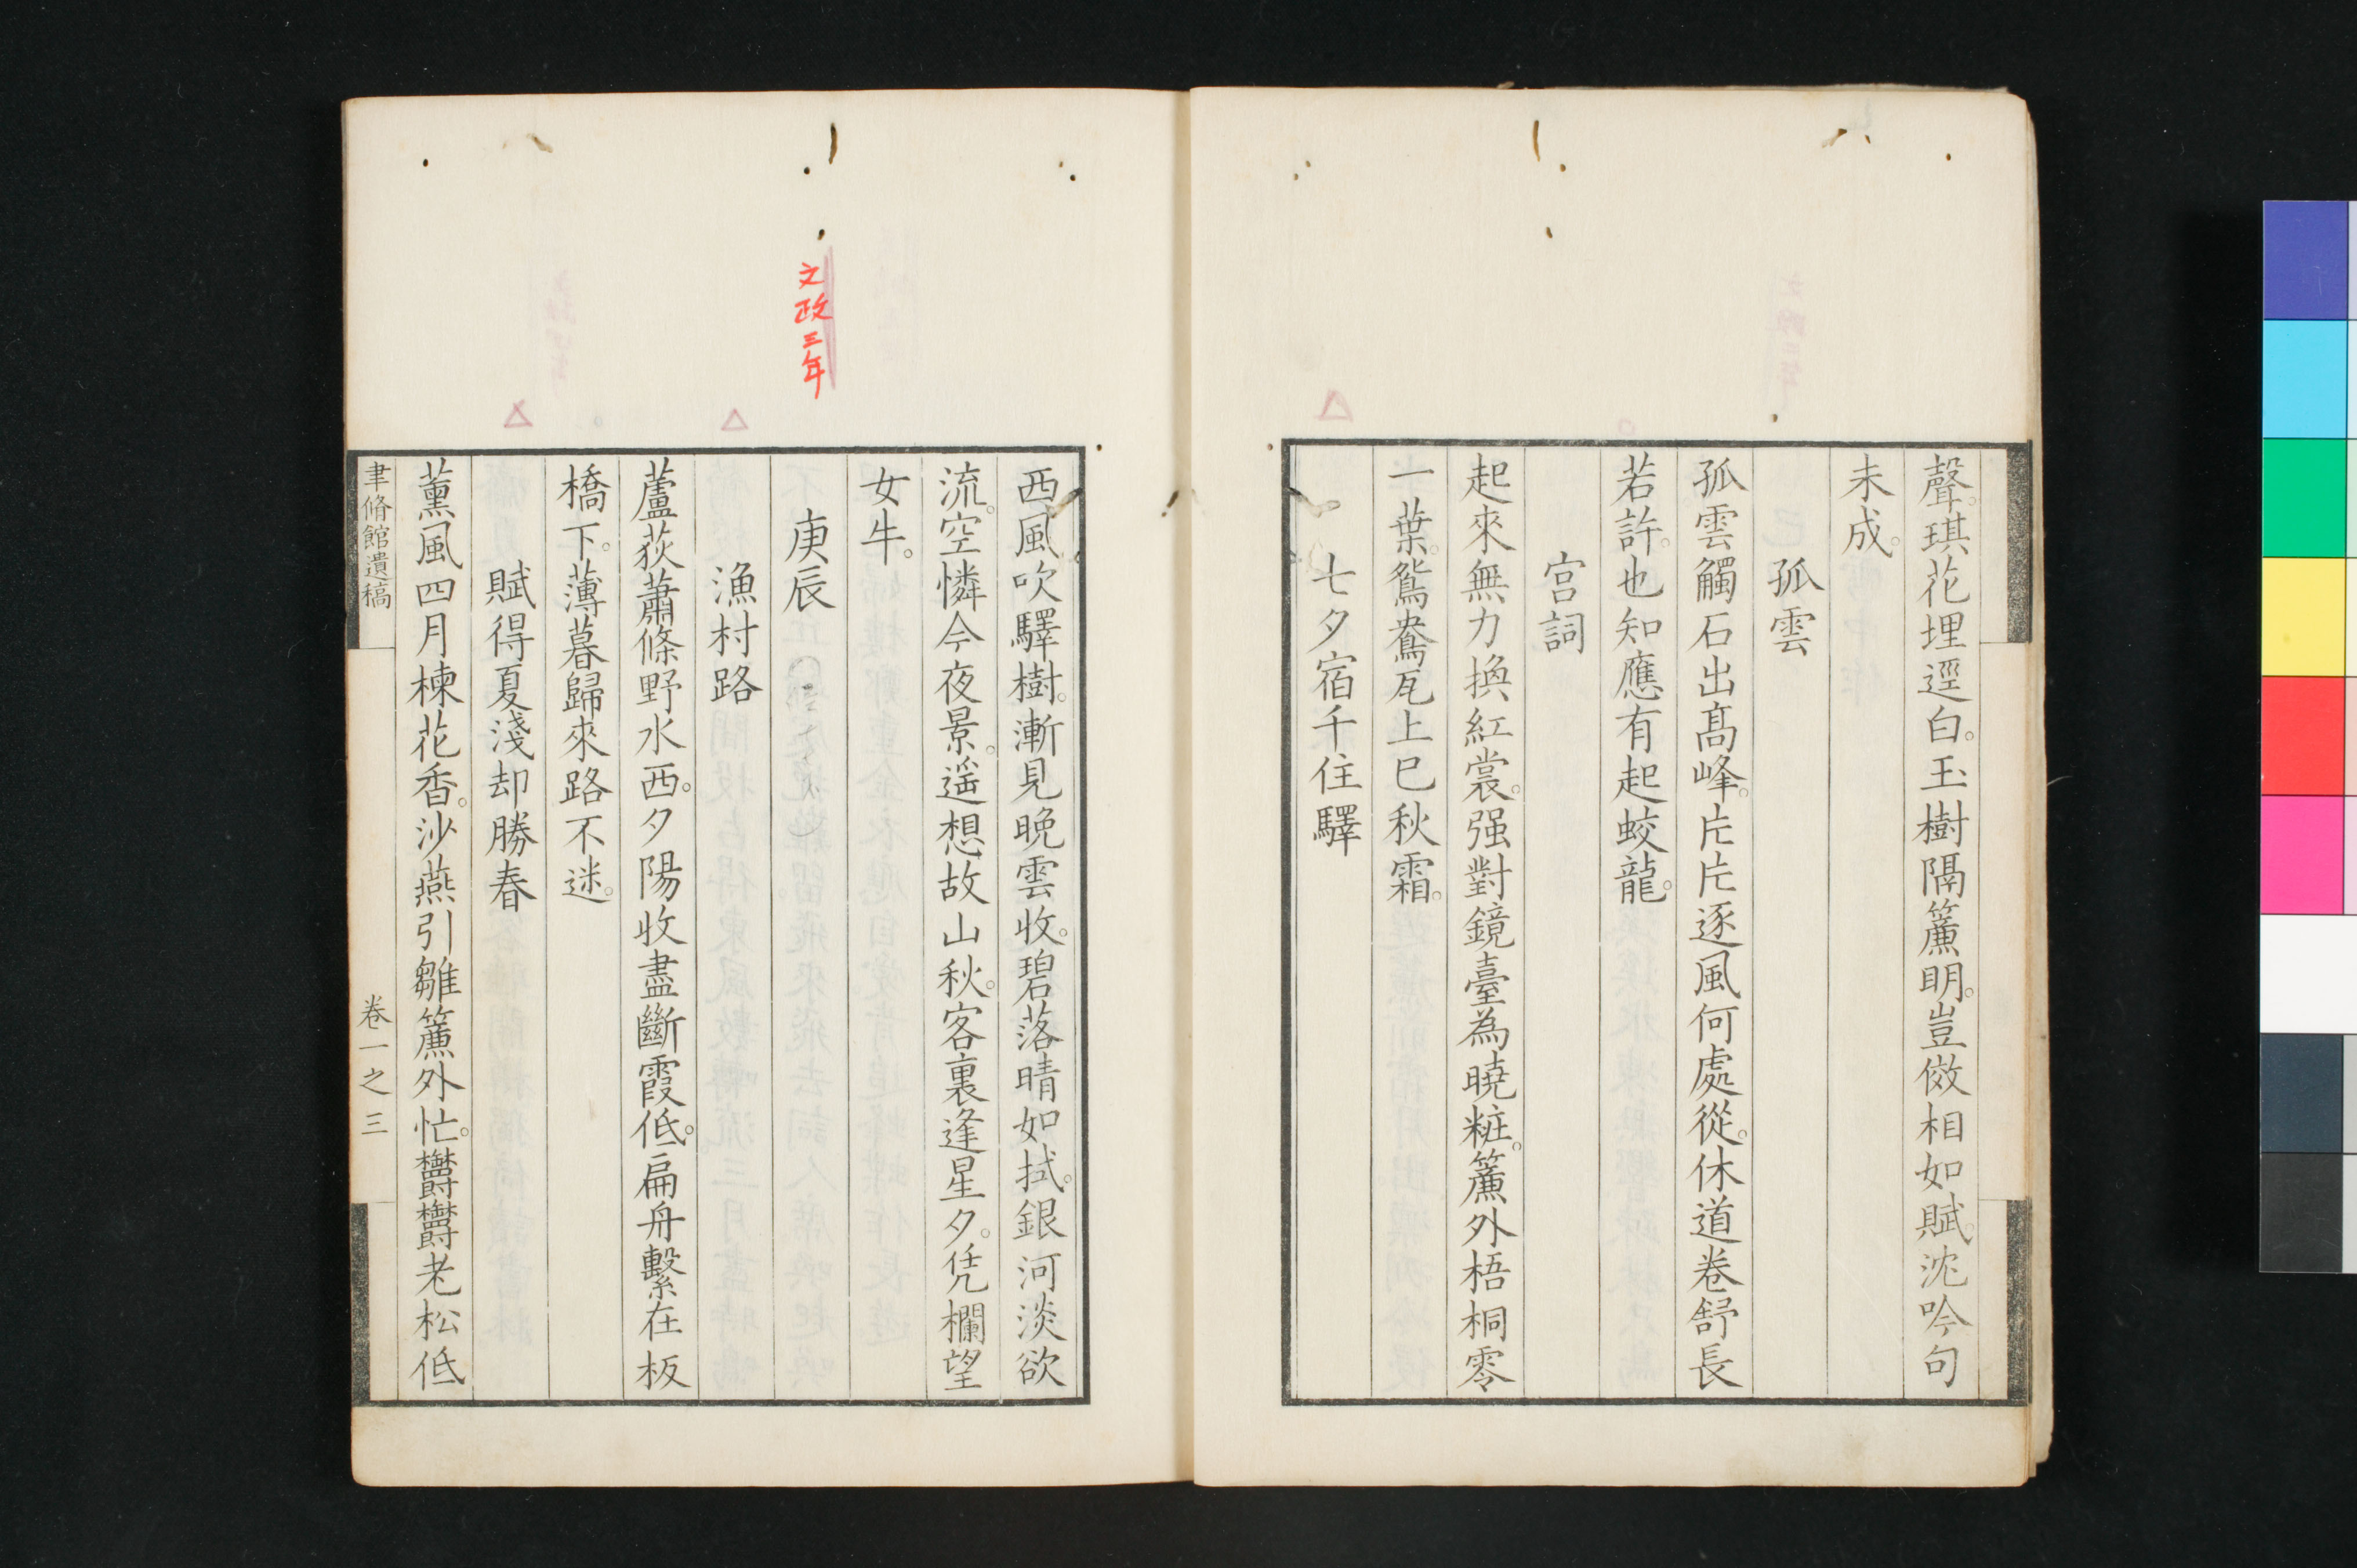 聲。琪花埋逕白。玉樹隔簾明。豈倣相如賦。沈吟句
未成。
孤雲
孤雲觸石出髙峰。片片逐風何處從。休道卷舒長
若許。也知應有起蛟龍。
宮詞
起來無力換紅裳。强對鏡臺為曉粧。簾外梧桐零
一葉。鴛鴦瓦上已秋霜。
七夕宿千住驛
西風吹驛樹。漸見晚雲收。碧落晴如拭。銀河淡欲
流。空憐今夜景。遥想故山秋。客裏逢星夕。凭欄望
女牛。
文政三年
庚辰
漁村路
蘆荻蕭條野水西。夕陽收盡斷霞低。扁舟繫在板
橋下。薄暮歸來路不迷。
賦得夏淺却勝春
薫風四月楝花香。沙燕引雛簾外忙。欝欝老松低
聿脩館遺稿
卷一之三